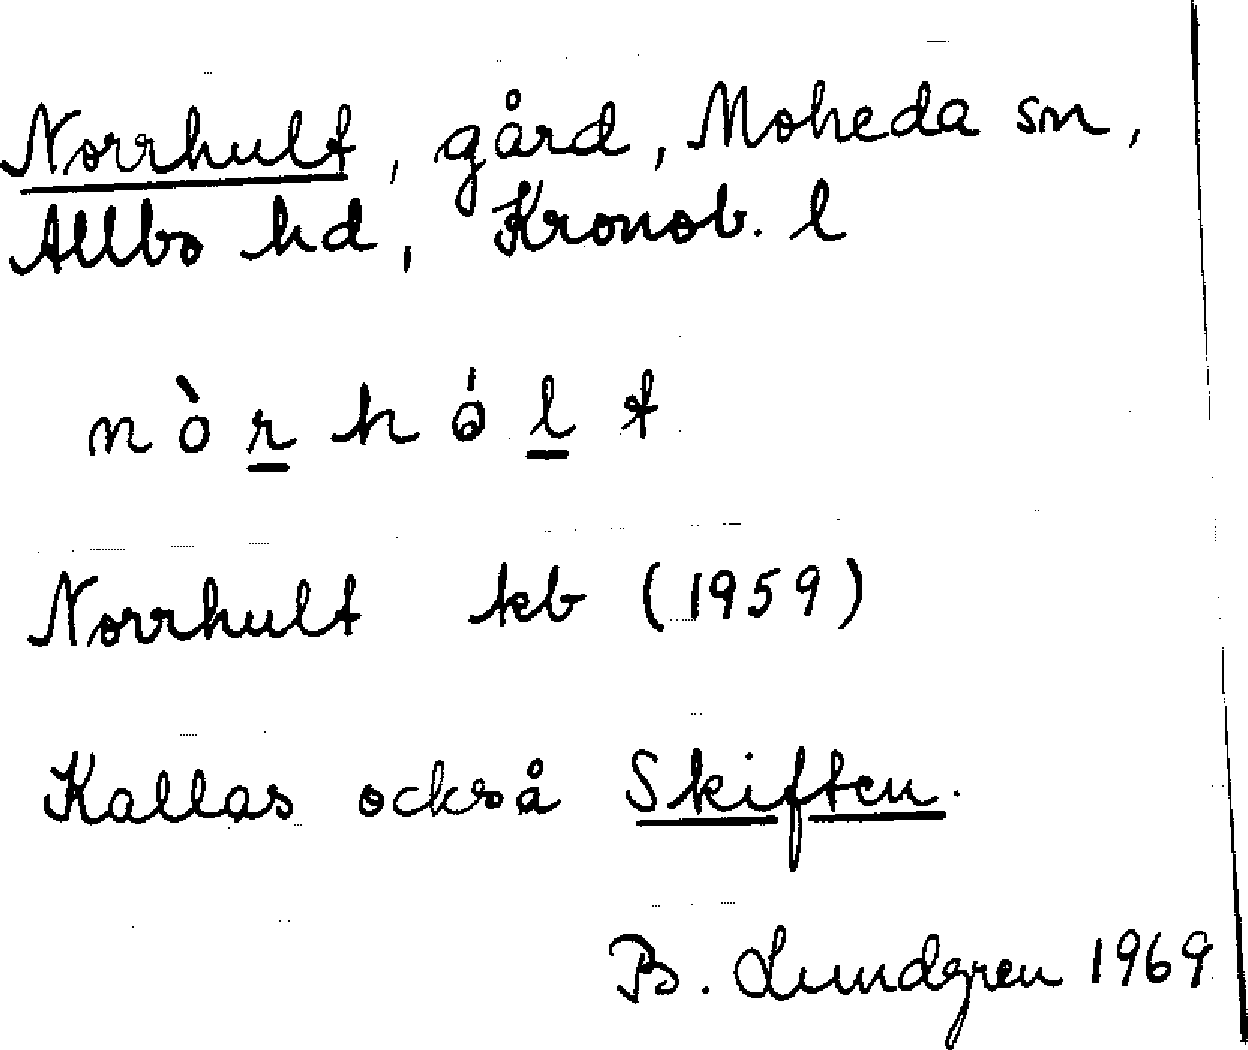 Norrhult, gård, Moheda sn,
Allbo hd, Kronob. l
n ò r h ó l t
Norrhult kb (1959)
Kallas också Skiften.
B. Lundgren 1969